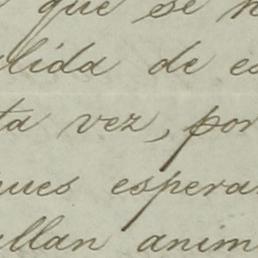 que se h
lida de es
ta vez, por
ues espera
llan anim